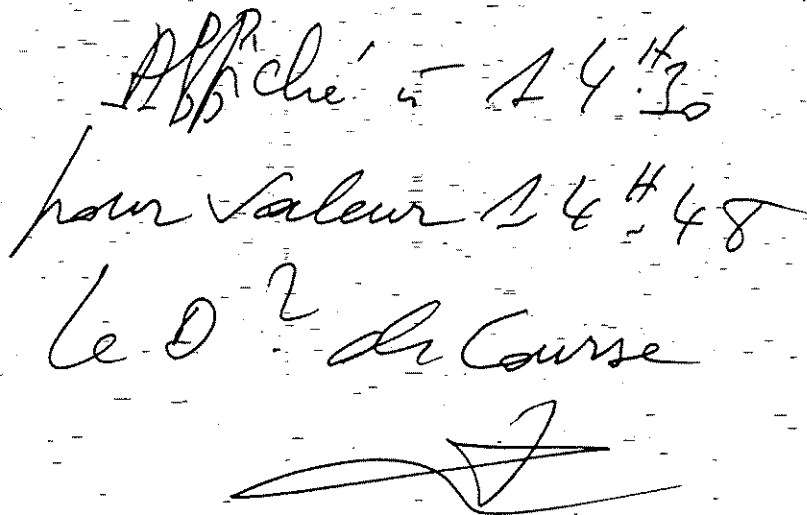 Affiché à 14H30
pour valeur 14H48
Le Dr de Course